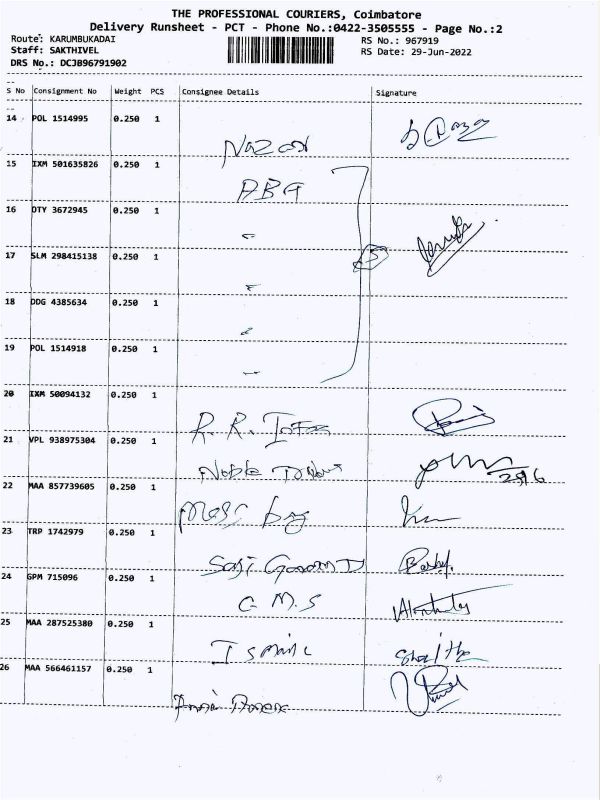 THE PROFESSIONAL COURIERS, Coimbatore
Delivery Runsheet - PCT - Phone No.:0422-3505555 - Page No.:2
Route: KARUMBUKADAI RS No.: 967919
Staff: SAKTHIVEL RS Date: 29-Jun-2022
DRS No.: DCJB96791902
S No Consignment No Weight PCS Consignee Details Signature
14 POL 1514995 0.250 1
15 IXM 501635826 0.250 1
ABG
16 OTY 3672945 0.250 1
17 SLM 298415138 0.250 1
5
18 DDG 4385634 0.250 1
19 POL 1514918 0.250 1
20 IXM 50094132 0.250 1
R. R. Infra
21 VPL 938975304 0.250 1
Noble
22 MAA 857739605 0.250 1
23 TRP 1742979 0.250 1
24 GPM 715096 0.250 1
C M.S
25 MAA 287525380 0.250 1
Ismail
26 MAA 566461157 0.250 1